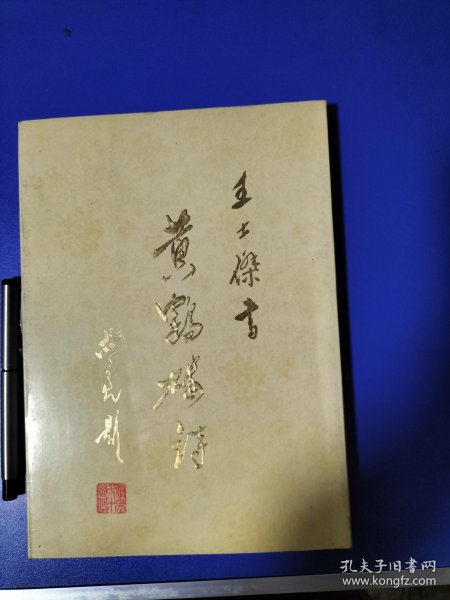 王士傑書
黄鶴樓詩
题
孔夫子旧书网
www.kongfz.com